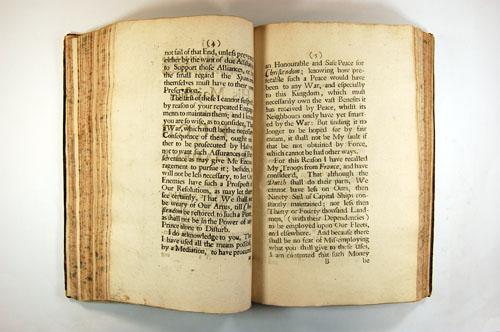 ( 4 )
not fail of that End, unless prevented
either by the want of due Assistance
to Support those Alliances, or by
the small regard the Spaniards
themselves must have to their own
Preservation.
The first of these I cannot suspect
by reason of your repeated Engage-
ments to maintain them; and I know
you are so wise, as to consider, That
a War, which must be the necessary
Consequence of them, ought neither
to be prosecuted by Halves,
not to want such Assurances of Per-
severance as may give Me Encou-
ragement to pursue it; besides,
will not be less necessary, to let Our
Enemies have such a Prospect of
Our Resolutions, as may let them
see certainly, That We shall not
be weary of Our Arms, till Chri-
stendom be restored to such a Peace,
as shall not be in the Power of any
Prince alone to Disturb.
I do acknowledge to you, That
I have used all the means possible,
by a Mediation, to have procured
( 5 )
an Honourable and Safe Peace for
Christendom; knowing how pre-
ferable such a Peace would have
been to any War, and especially
to this Kingdom, which must
necessarily own the vast Benefits it
has received by Peace, whilst its
Neighbours onely have yet smart-
ed by the War: But finding it no
longer to be hoped for by fair
means, it shall not be My fault if
that be not obtained by Force,
which cannot be had other ways.
For this Reason I have recalled
My Troops from France, and have
consider'd, That although the
Dutch shall do their parts, We
cannot have less on Ours, then
Ninety Sail of Capital Ships con-
stantly maintained; nor less then
Thirty or Fourty thousand Land-
men, (with their Dependencies)
to be employed upon Our Fleets,
and elsewhere. And because there
shall be no fear of Mis-employing
what you shall give to these Uses,
I am contented that such Money
B be